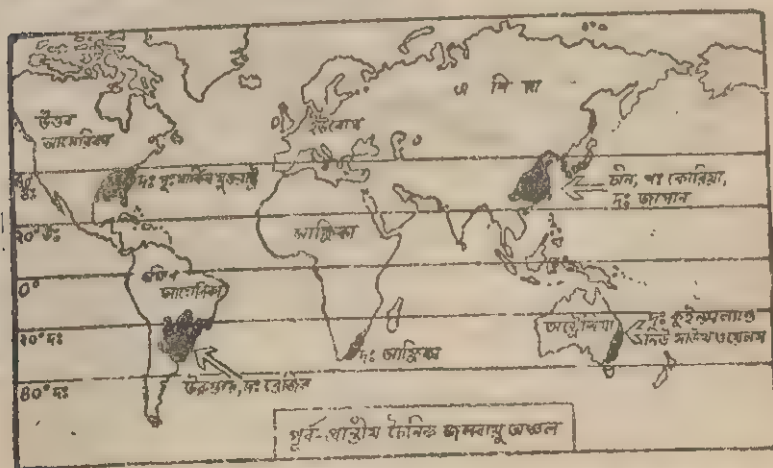 উত্তর
আমেরিকা
এ শি য়া
ইউরোপ
দঃ পূঃ মার্কিন যুক্তরাষ্ট্র
চীন, দঃ কোরিয়া,
দঃ জাপান
২০°উঃ
আফ্রিকা
0°
দক্ষিণ
আমেরিকা
২০°দঃ
অস্ট্রেলিয়া
দঃ কুইন্সল্যাণ্ড
নিউ সাউথ ওয়েলস
দঃ আফ্রিকা
উরুগুয়ে, দঃ ব্রেজিল
৪০°দঃ
পূর্ব-প্রান্তীয় চৈনিক জলবায়ু অঞ্চল